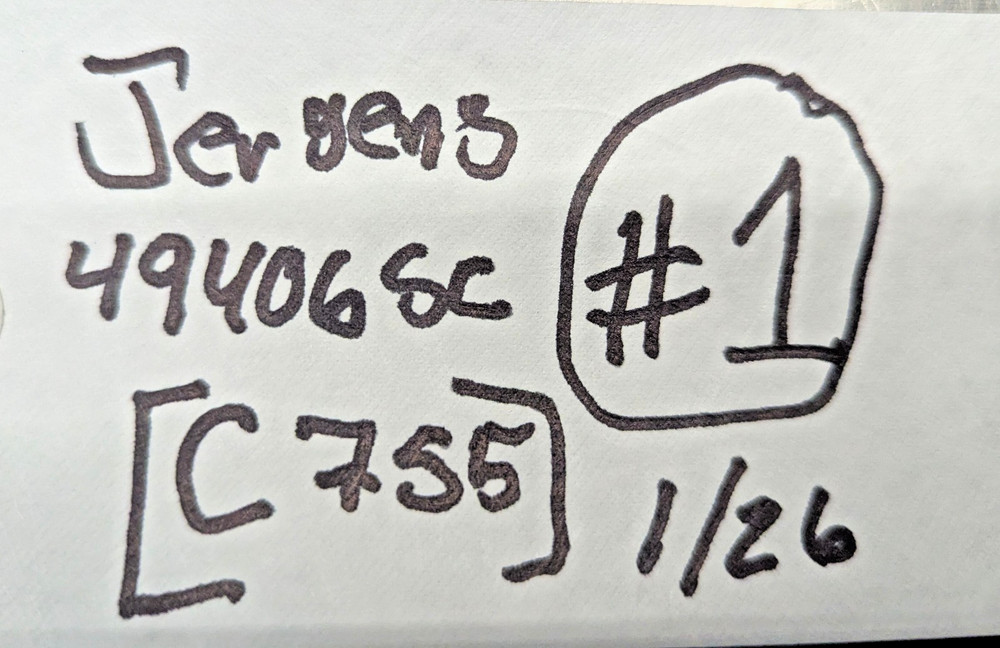 Jergens
49406SC
#1
[C755]
1/26